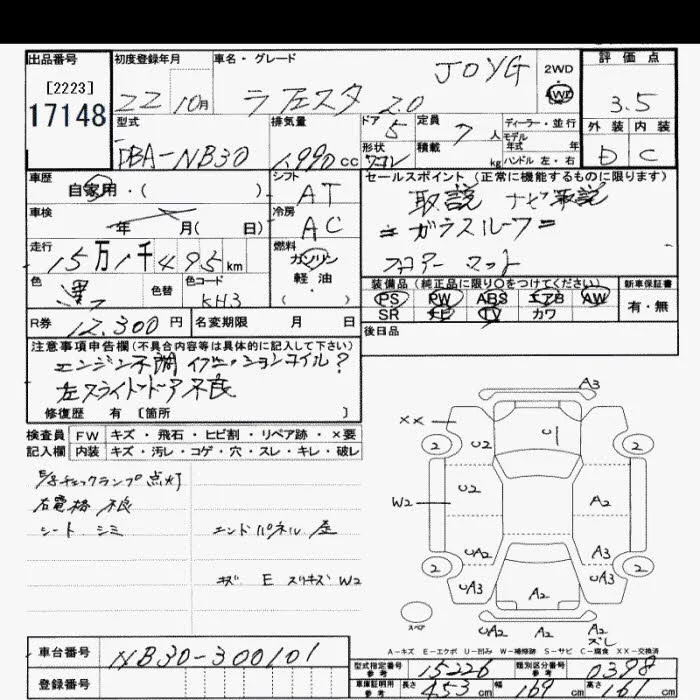 出品番号 初度登録年月 車名・グレード 評価点
[2223] JOYG 2WD
17148 22 10月 ラフェスタ 2.0 4WD 3.5
型式 排気量 ドア 5 定員 7 人 ディーラー・並行 外装 内装
モデル年式 年
DBA-NB30 1,990 cc 形状 ワゴン 積載 kg ハンドル 左・右 D C
車歴 シフト セールスポイント (正常に機能するものに限ります)
自家用・( ) AT 取説 ナビ取説
車検 冷房
年 月( 日) AC =ガラスルーフ=
走行 燃料
15万1千495km ガソリン フロアーマット
色 色替 色コード 軽油・ 装備品(純正品に限り○をつけてください) 新車保証書
黒 KH3 ( ) PS PW ABS エアB AW 有・無
SR ナビ TV カワ
R券 12,300円 名変期限 月 日 後日品
注意事項申告欄(不具合内容等は具体的に記入して下さい)
エンジン不調 イグニッションコイル?
左スライドドア不良
修復歴 有 [箇所 ]
検査員 FW キズ・飛石・ヒビ割・リペア跡・×要
記入欄 内装 キズ・汚レ・コゲ・穴・スレ・キレ・破レ
E/gチェックランプ点灯
右電格 不良
シート シミ エンドパネル 歪
キズ E スリキズ W2
A3
XX U1
2 U2 2
U2
W2 A2
UA2 A3
2 UA3 UA3 2
A2
スペア UA2 A2 A2
ズレ
A-キズ E-エクボ U-凹み W-補修跡 S-サビ C-腐食 XX-交換済
車台番号 NB30-300101
型式指定番号 参考 15226 類別区分番号 参考 0398
登録番号 車庫証明用 参考 長さ 453 cm 幅 169 cm 高さ 161 cm